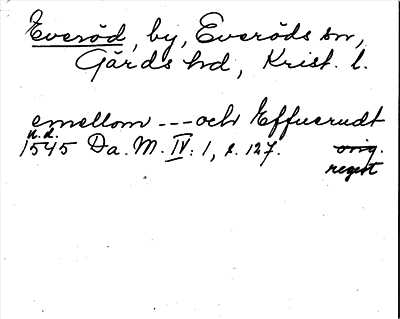 Everöd, by, Everöds sn,
Gärds hd, Krist. l.
emellom --- och Effuerudt
n.d.
1545 Da. M. IV: 1, s. 127. orig.
regest